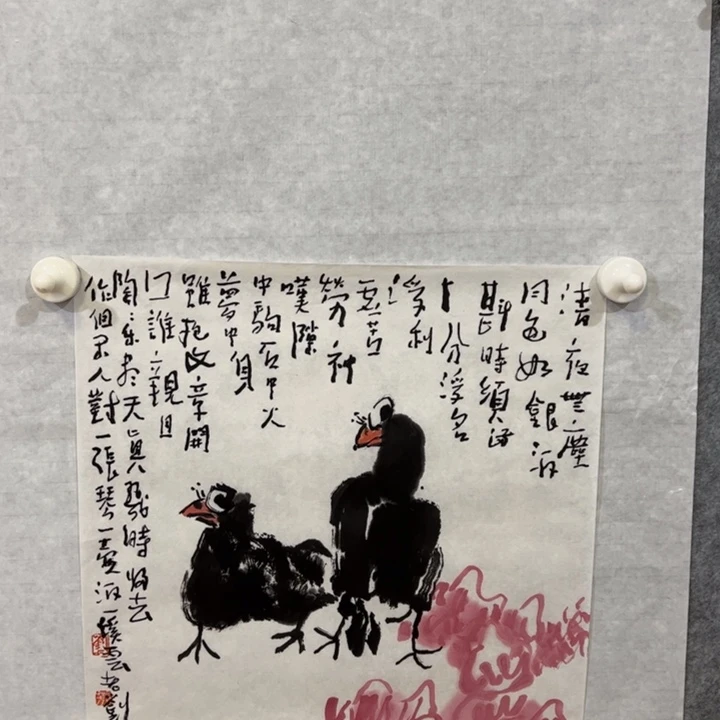 清夜無塵
月色如銀酒
斟時須滿
十分浮名
浮利
虛苦
勞神
嘆隙
中駒石中火
夢中身
雖抱文章開
口誰親且
陶陶樂盡天真幾時歸去
作個閑人對一張琴一壺酒一溪雲